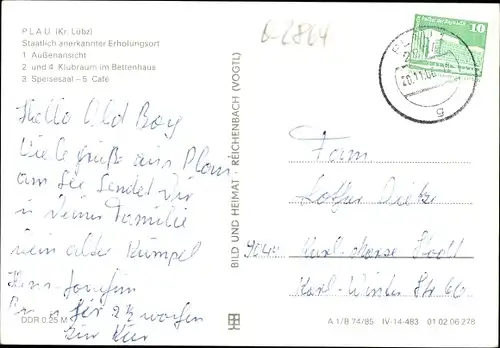 PLAU (Kr. Lübz)
Staatlich anerkannter Erholungsort
1 Außenansicht
2 und 4 Klubraum im Bettenhaus
3 Speisesaal – 5 Café
Hello Old Boy
Viele grüße aus Plau
am See Sendet Dir
u Deiner Familie
Dein alter Kumpel
Hans-Joachim
für 2½ wochen
zur Kur
DDR 0.25 M
BILD UND HEIMAT · REICHENBACH (VOGTL)
6-2864
PL
5
10
Fam
Lothar
Karl-Marx-Stadt
Karl-Winter Str 60
A 1/B 74/85 IV-14-483 01 02 06 278